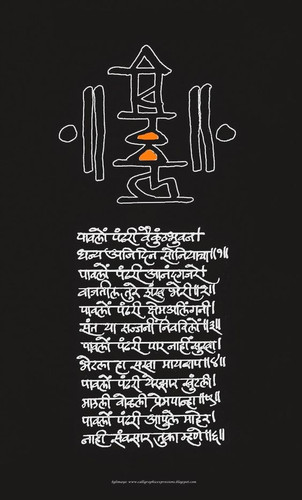 ॥ विठ्ठल ॥
पावलों पंढरी वैकुंठभुवन।
धन्य आजि दिन सोनियाचा॥१॥
पावलों पंढरी आनंदगजरें।
वाजतील तुरे शंख भेरी॥२॥
पावलों पंढरी क्षेमआलिंगनी।
संत या सज्जनीं निवविलों॥३॥
पावलों पंढरी पार नाहीं सुखा।
भेटला हा सखा मायबाप॥४॥
पावलों पंढरी येरझार खुंटली।
माउली वोळली प्रेमपान्हा॥५॥
पावलों पंढरी आपुलें माहेर।
नाहीं संवसार तुका म्हणे॥६॥
www.calligraphicexpressions.blogspot.com